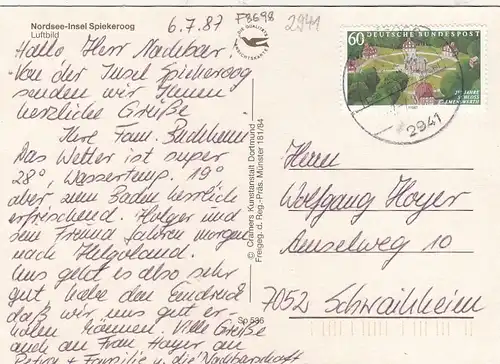 Nordsee-Insel Spiekeroog
Luftbild
6.7.87
F8698
2941
Hallo Herr Nachbar!
Von der Insel Spiekeroog
senden wir Ihnen
herzliche Grüße
Ihre Fam.
Das Wetter ist super
28°, Wassertemp. 19°
aber zum Baden herrlich
erfrischend. Holger und
sein Freund fahren morgen
nach Helgoland.
Uns geht es also sehr
gut habe den Eindruck
daß wir uns gut er-
holen können. Viele Grüße
auch an Frau Hoyer an
Petra + Familie u. die Nachbarschaft
© Cramers Kunstanstalt Dortmund
Freigeg. d. Reg.-Präs. Münster 181/84
Sp 536
60
DEUTSCHE BUNDESPOST
CLEMENSWERTH
2941
Herrn
Wolfgang Hoyer
Amselweg 10
7052 Schwaikheim